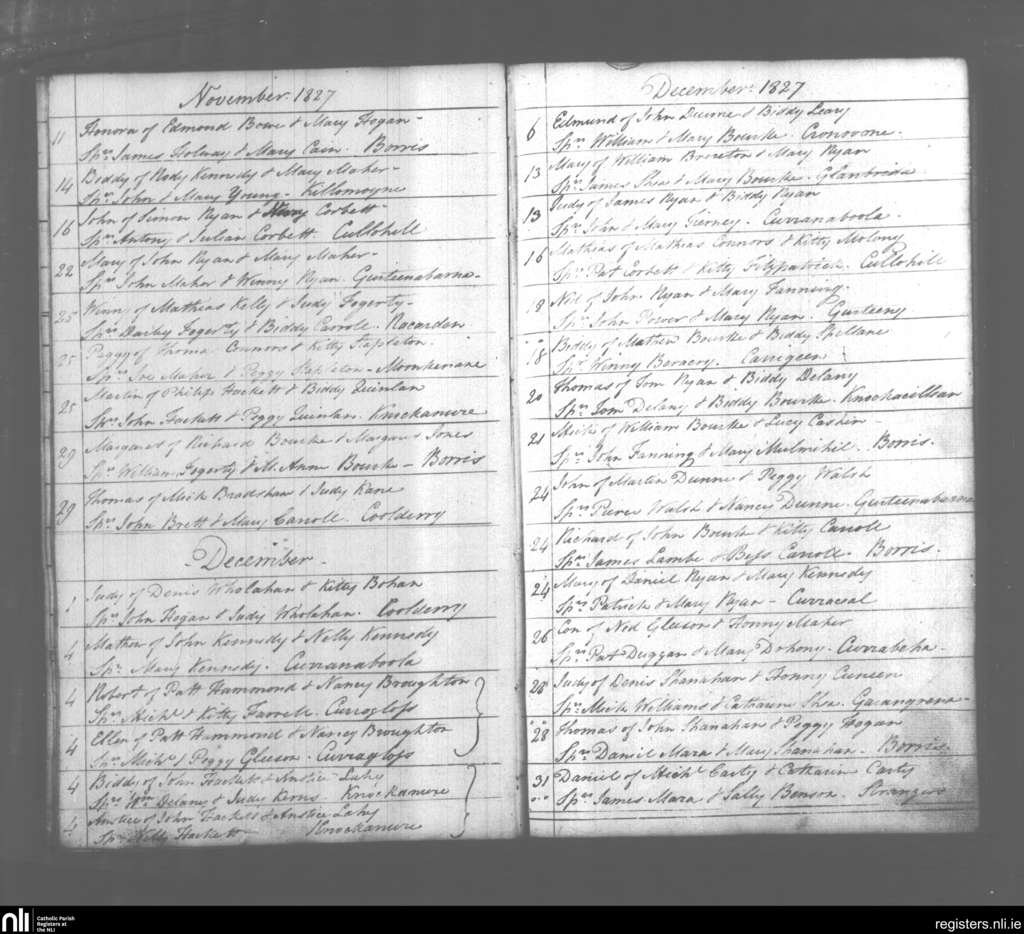 November 1827
11 Honora of Edmond Bowe & Mary Hogan -
Sprs James Holway & Mary Cain. Borris
14 Biddy of Rody Kennedy & Mary Maher -
Sprs John & Mary Young - Killamoyne
16 John of Simon Ryan & Mary Corbett -
Sprs Antony & Julian Corbett. Cullohill
22 Mary of John Ryan & Mary Maher -
Sprs John Maher & Winny Ryan. Gurteenabarna -
25 Winny of Mathias Kelly & Judy Fogerty -
Sprs Darby Fogerty & Biddy Carroll. Racarden
25 Peggy of Thomas Connors & Kitty Stapleton.
Sprs Joe Maher & Peggy Stapleton -
25 Martin of Philip Hackett & Biddy Quinlan
Sprs John Hackett & Peggy Quinlan. Knockanure
29 Margaret of Richard Bourke & Margaret Jones
Sprs William Fogerty & M. Ann Bourke - Borris
29 Thomas of Mich Bradshaw & Judy Kane
Sprs John Brett & Mary Carroll. Coolderry
December -
1 Judy of Denis Wholahan & Kitty Bohan
Sprs John Hogan & Judy Wholahan. Coolderry
4 Mathew of John Kennedy & Nelly Kennedy
Spr. Mary Kennedy. Curranaboola
4 Robert of Patt Hammond & Nancy Broughton
Sprs Michl & Kitty Farrell. Curraglass
4 Ellen of Patt Hammond & Nancy Broughton
Sprs Michl & Peggy Gleeson - Curraglass
4 Biddy of John Hackett & Anstice Lahy
Sprs Wm Delany & Judy Kirns. Knockanure
4 Anstice of John Hackett & Anstice Lahy
Spr Nelly Hackett Knockanure
December 1827
6 Edmund of John Dunne & Biddy Leary
Sprs William & Mary Bourke. Cronovone.
13 Mary of William Brereton & Mary Ryan
Sprs James Shea & Mary Bourke. Glanbrida
13 Judy of James Ryan & Biddy Ryan
Sprs John & Mary Tierney. Curranaboola.
16 Mathias of Mathias Connors & Kitty Molony
Sprs Pat Corbett & Kitty Fitzpatrick. Cullohill
18 Ned of John Ryan & Mary Fanning.
Sprs John Power & Mary Ryan. Gurteeny
18 Biddy of Mathew Bourke & Biddy Spellane
Spr. Winny Carrigeen
20 Thomas of Tom Ryan & Biddy Delany
Sprs Tom Delany & Biddy Bourke.
21 Mich of William Bourke & Lucy Caskin -
Sprs John Fanning & Mary Mulrihil. Borris.
24 John of Martin Dunne & Peggy Walsh
Sprs Pierce Walsh & Nance Dunne. Gurteenabarna
24 Richard of John Bourke & Kitty Carroll
Sprs James Lambe & Bess Carroll. Borris.
24 Mary of Daniel Ryan & Mary Kennedy
Sprs Patrick & Mary Ryan -
26 Con of Ned Gleeson & Honny Maher
Sprs Pat Duggan & Mary Dohony. Currabeha.
28 Judy of Denis Shanahan & Honny Cuneen
Sprs Mich Williams & Catharine Shea.
28 Thomas of John Shanahan & Peggy Hogan
Sprs Daniel Mara & Mary Shanahan - Borris
31 Daniel of Michl Carty & Catharin Carty
Sprs James Mara & Sally Benson. Strangers
nli Catholic Parish Registers at the NLI
registers.nli.ie